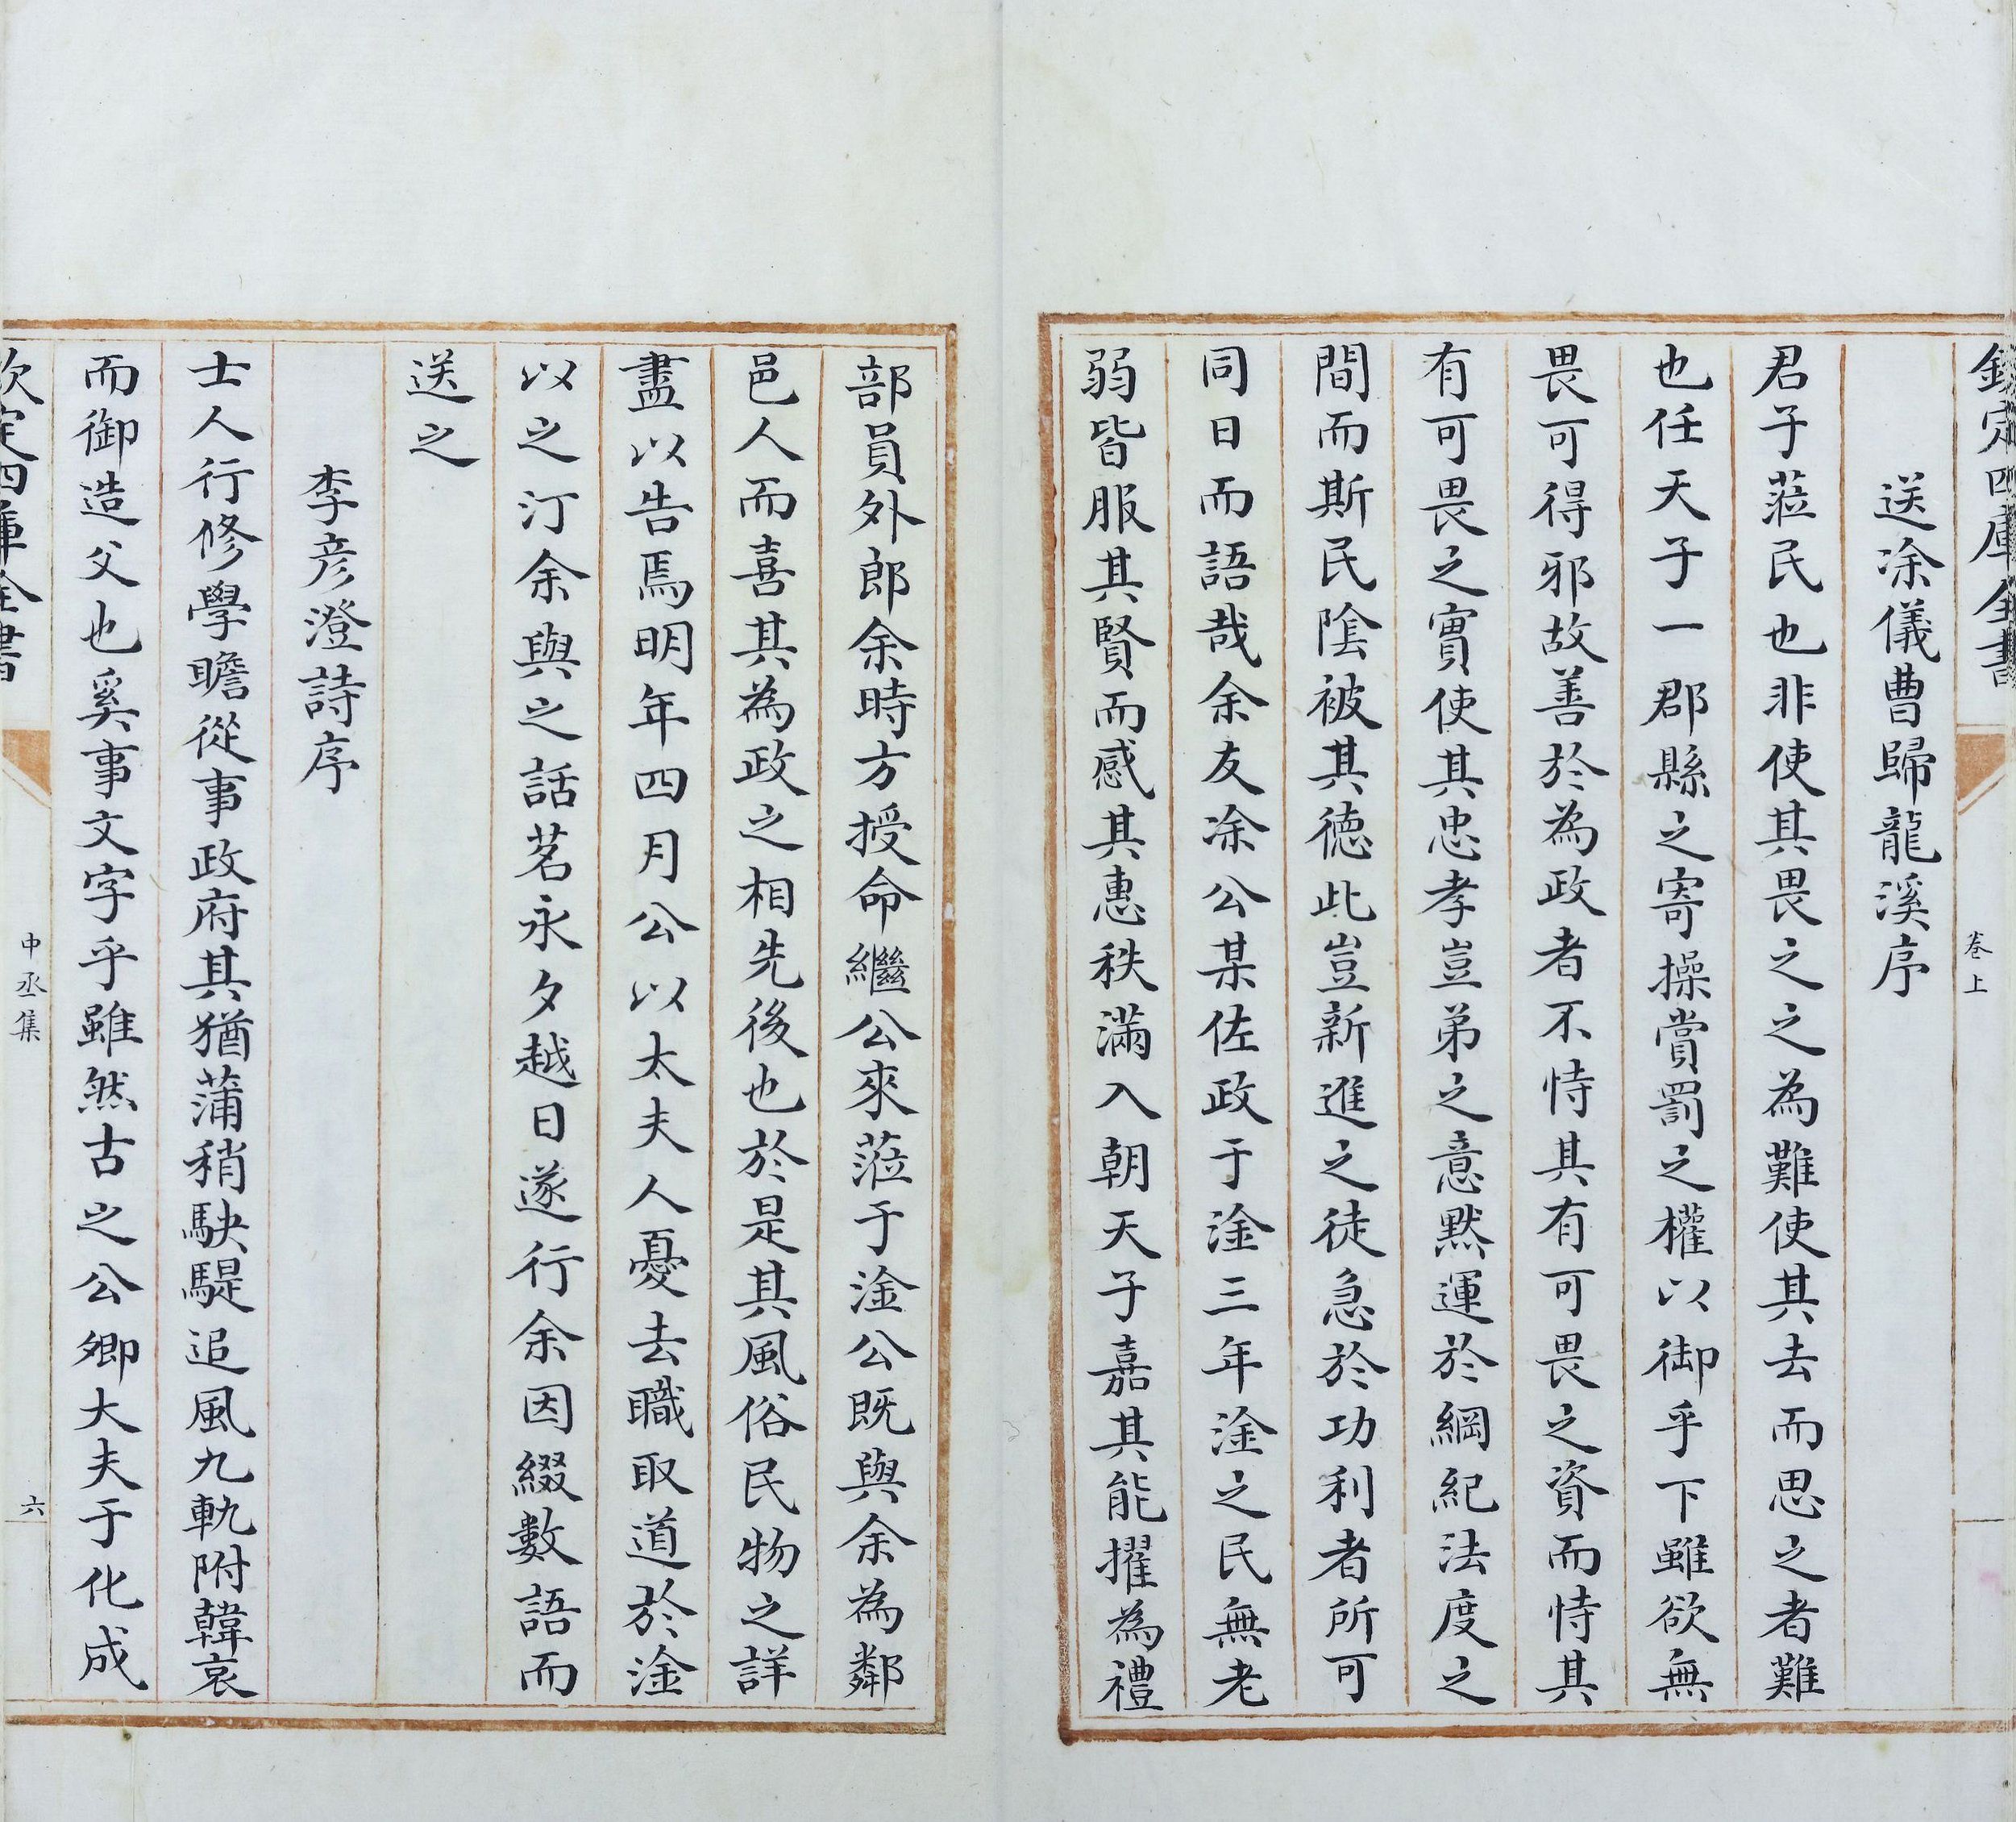 欽定四庫全書
卷上
送涂儀曹歸龍溪序
君子蒞民也非使其畏之之為難使其去而思之者難
也任天子一郡縣之寄操賞罰之權以御乎下雖欲無
畏可得邪故善於為政者不恃其有可畏之資而恃其
有可畏之實使其忠孝豈弟之意黙運於綱紀法度之
間而斯民陰被其徳此豈新進之徒急於功利者所可
同日而語哉余友涂公某佐政于淦三年淦之民無老
弱皆服其賢而感其惠秩滿入朝天子嘉其能擢為禮
部員外郎余時方授命繼公來蒞于淦公既與余為鄰
邑人而喜其為政之相先後也於是其風俗民物之詳
盡以告焉明年四月公以太夫人憂去職取道於淦
以之汀余與之話茗永夕越日遂行余因綴數語而
送之
李彦澄詩序
士人行修學贍從事政府其猶蒲稍駃騠追風九軌附韓哀
而御造父也奚事文字乎雖然古之公卿大夫于化成
欽定四庫全書
中丞集
六